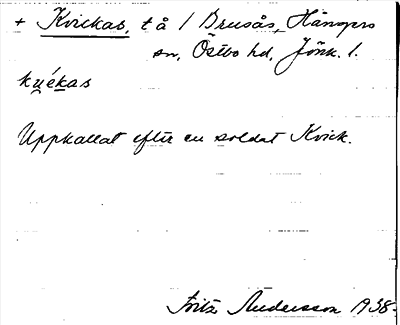 + Kvickas, t å / Brusås, Hångers
sn, Östbo hd, Jönk. l.
kvékas
Uppkallat efter en soldat Kvick.
Fritz Andersson 1938.